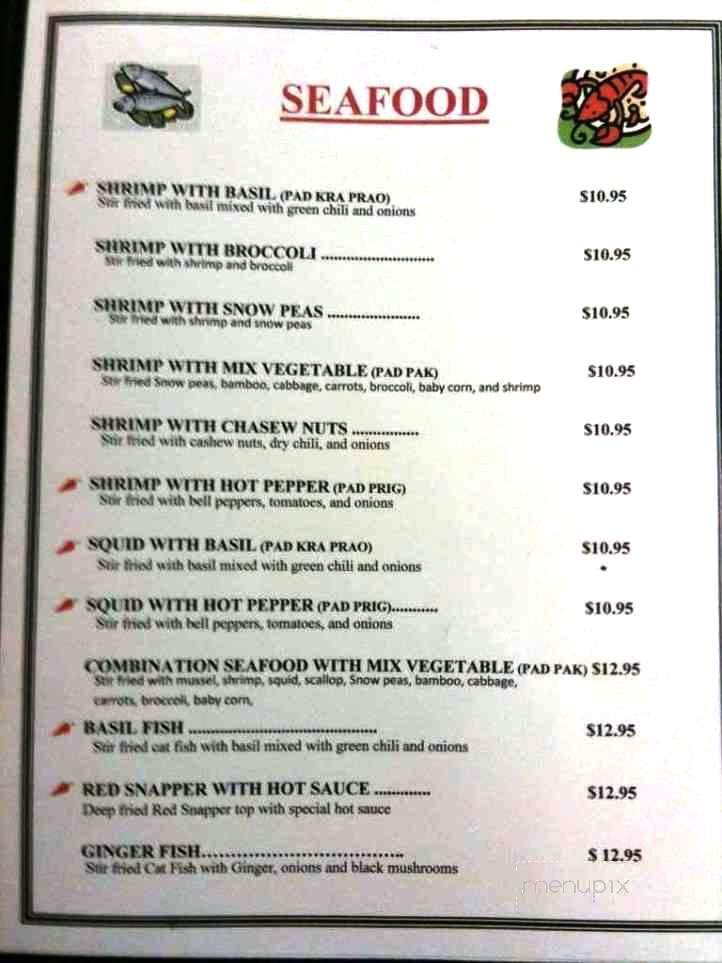 SEAFOOD
SHRIMP WITH BASIL (PAD KRA PRAO) $10.95
Stir fried with basil mixed with green chili and onions
SHRIMP WITH BROCCOLI ........................... $10.95
Stir fried with shrimp and broccoli
SHRIMP WITH SNOW PEAS ...................... $10.95
Stir fried with shrimp and snow peas
SHRIMP WITH MIX VEGETABLE (PAD PAK) $10.95
Stir fried Snow peas, bamboo, cabbage, carrots, broccoli, baby corn, and shrimp
SHRIMP WITH CHASEW NUTS ................ $10.95
Stir fried with cashew nuts, dry chili, and onions
SHRIMP WITH HOT PEPPER (PAD PRIG) $10.95
Stir fried with bell peppers, tomatoes, and onions
SQUID WITH BASIL (PAD KRA PRAO) $10.95
Stir fried with basil mixed with green chili and onions
SQUID WITH HOT PEPPER (PAD PRIG)........... $10.95
Stir fried with bell peppers, tomatoes, and onions
COMBINATION SEAFOOD WITH MIX VEGETABLE (PAD PAK) $12.95
Stir fried with mussel, shrimp, squid, scallop, Snow peas, bamboo, cabbage,
carrots, broccoli, baby corn,
BASIL FISH ............................................. $12.95
Stir fried cat fish with basil mixed with green chili and onions
RED SNAPPER WITH HOT SAUCE ............. $12.95
Deep fried Red Snapper top with special hot sauce
GINGER FISH.................................... $ 12.95
Stir fried Cat Fish with Ginger, onions and black mushrooms
menupix